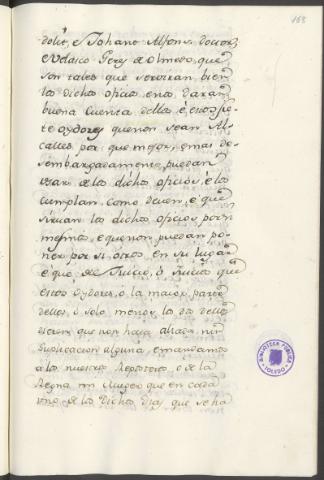 163
dolit, e Johane Alfons, Doctor,
e Velasco Perez de Olmedo, que
son tales que serviran bien
los dichos oficios en a daran
buena cuenta dellos é estos sie
te oydores que non sean Al
calles por que mejor, é mas de
sembargadamente puedan
usar de los dichos oficios, é los
cumplan como deven, é que
sirvan los dichos oficios por si
mesmos, é que non puedan po
ner por si otros en su lugar
é que del Juicio, ó Juicios que
estos Oydores, ó la maior parte
dellos, ó solo menos los dos dellos
dieren, que non haya alzada nin
suplicacion alguna, é mandamos
a los nuestros Reposteros, é de la
Regna mi Muger que en cada
uno de los dichos dias que se ha
BIBLIOTECA PUBLICA
TOLEDO